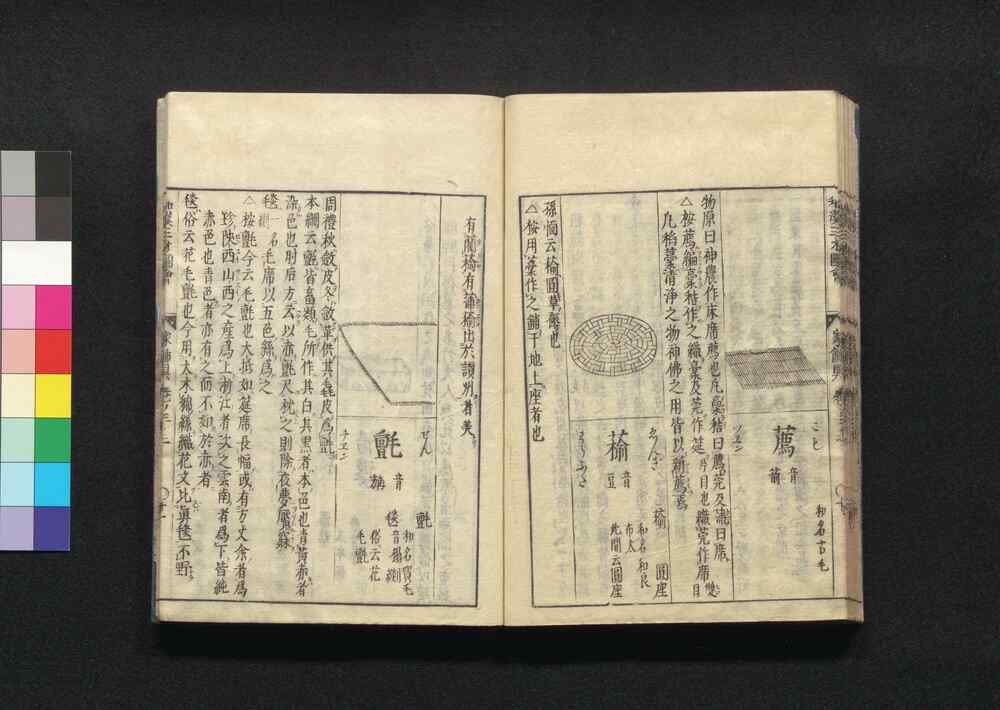 薦
音
箭
こも
ツヱン
和名古毛
物原曰神農作床席薦也凡藁秸曰薦莞及蒲曰席
△按薦編藁秸作之織藁及莞作筵片目也織莞作席雙目
凡稻藁清淨之物神佛之用皆以新薦爲
音
豆
ゑんざ
わらふだ
圓座
和名和良
布太
此間云圓座
孫愐云圓草褥也
△按用藁作之鋪于地上座者也
有藺有蒲出於讃州者美
氈
音
旃
せん
チヱン
和名賀毛
俗云花
毛氈
周禮秋斂皮冬斂革供其毳皮爲氈
本綱云氈皆畜類毛所作其白其黒者本色也其青黃赤者
染色也肘后方云以赤氈尺枕之則除夜夢魘寐
毯 一名毛席以五色絲爲之
△按氈今云毛氈也大抵如筵席長幅或有方丈余者爲
珍陝西山西之産爲上浙江者次之雲南者爲下皆純
赤色也青色者亦有之而不如於赤者
毯俗云花毛氈也今用太木綿絲織花文比眞毯不野
和漢三才圖會